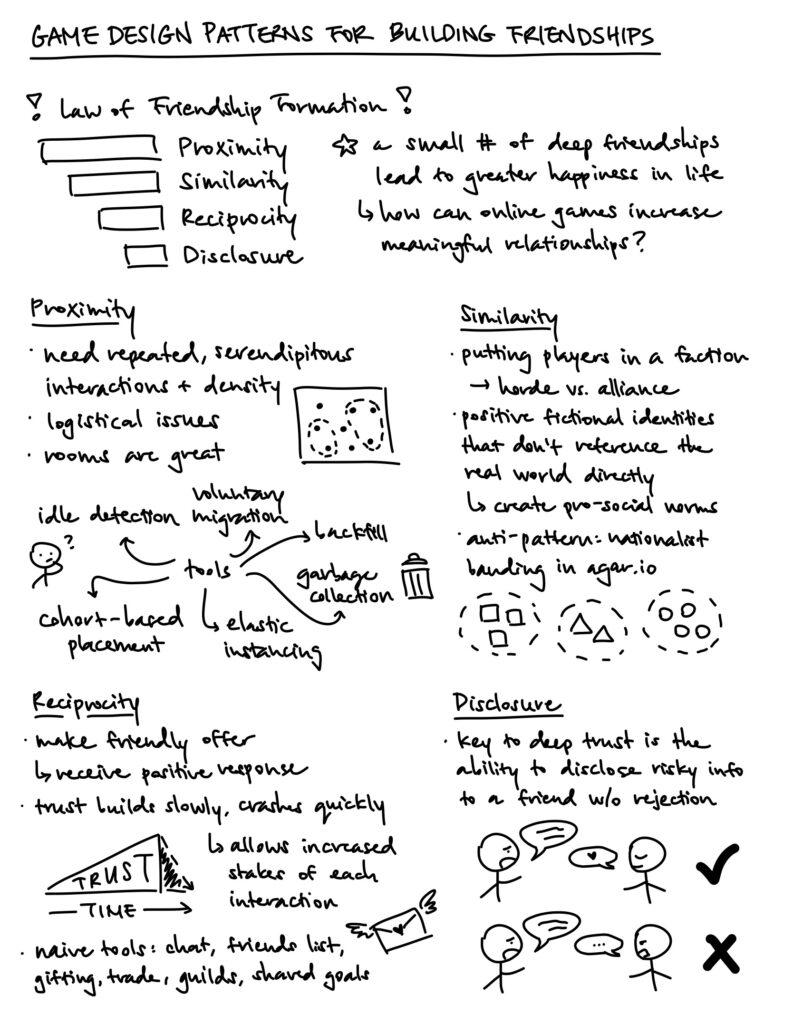 GAME DESIGN PATTERNS FOR BUILDING FRIENDSHIPS
! Law of Friendship Formation !
Proximity
Similarity
Reciprocity
Disclosure
☆ a small # of deep friendships
lead to greater happiness in life
↳ how can online games increase
meaningful relationships?
Proximity
· need repeated, serendipitous
interactions + density
· logistical issues
· rooms are great
idle detection
voluntary
migration
backfill
?
tools
garbage
collection
cohort-based
placement
elastic
instancing
Similarity
· putting players in a faction
→ horde vs. alliance
· positive fictional identities
that don't reference the
real world directly
↳ create pro-social norms
· anti-pattern: nationalist
banding in agar.io
Reciprocity
· make friendly offer
↳ receive positive response
· trust builds slowly, crashes quickly
↳ allows increased
stakes of each
interaction
TRUST
TIME →
· naive tools: chat, friends list,
gifting, trade, guilds, shared goals
Disclosure
· key to deep trust is the
ability to disclose risky info
to a friend w/o rejection
...